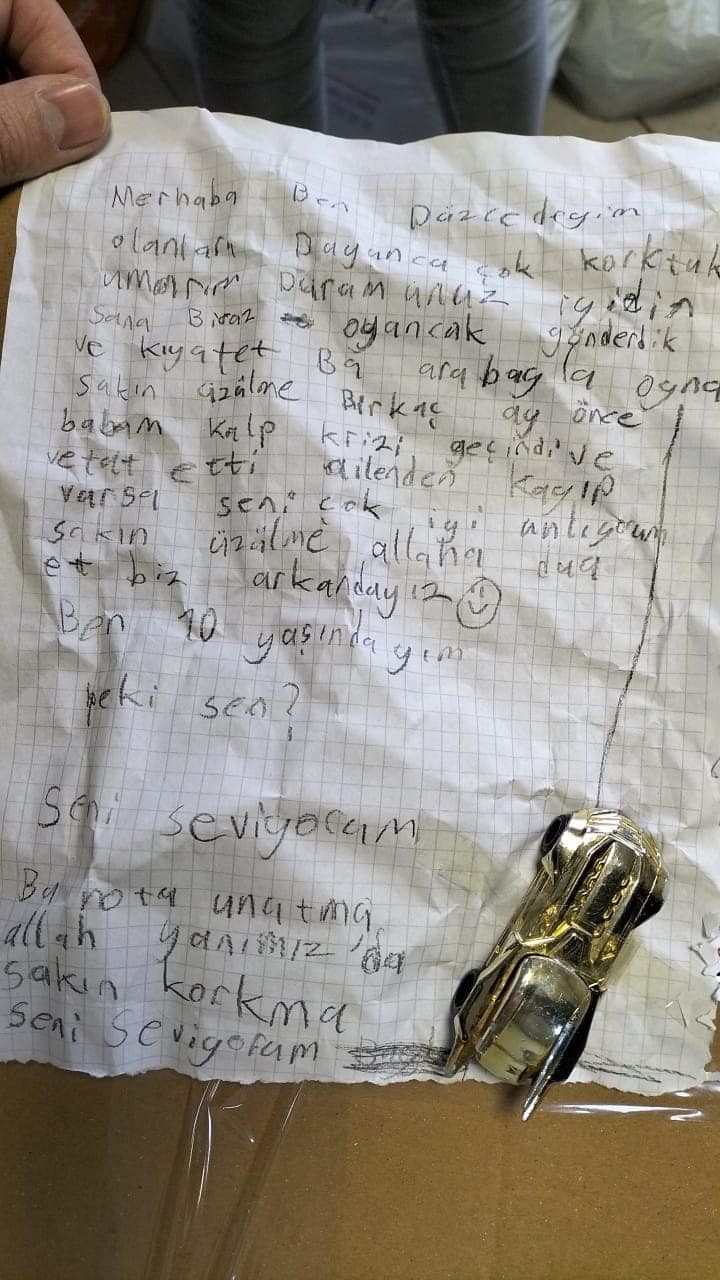 Merhaba Ben Düzcedeyim
olanları Duyunca çok korktuk
umarım Durumunuz iyidir
Sana Biraz oyancak gönderdik
ve kıyafet Bu arabayla oyna
sakın üzülme Birkaç ay önce
babam kalp krizi geçirdi ve
vefat etti ailenden kayıp
varsa seni çok iyi anlıyorum
sakın üzülme allaha dua
et biz arkandayız
Ben 10 yaşındayım
peki sen?
Seni seviyorum
Bu notu unutma
allah yanımız'da
Sakın korkma
Seni Seviyorum